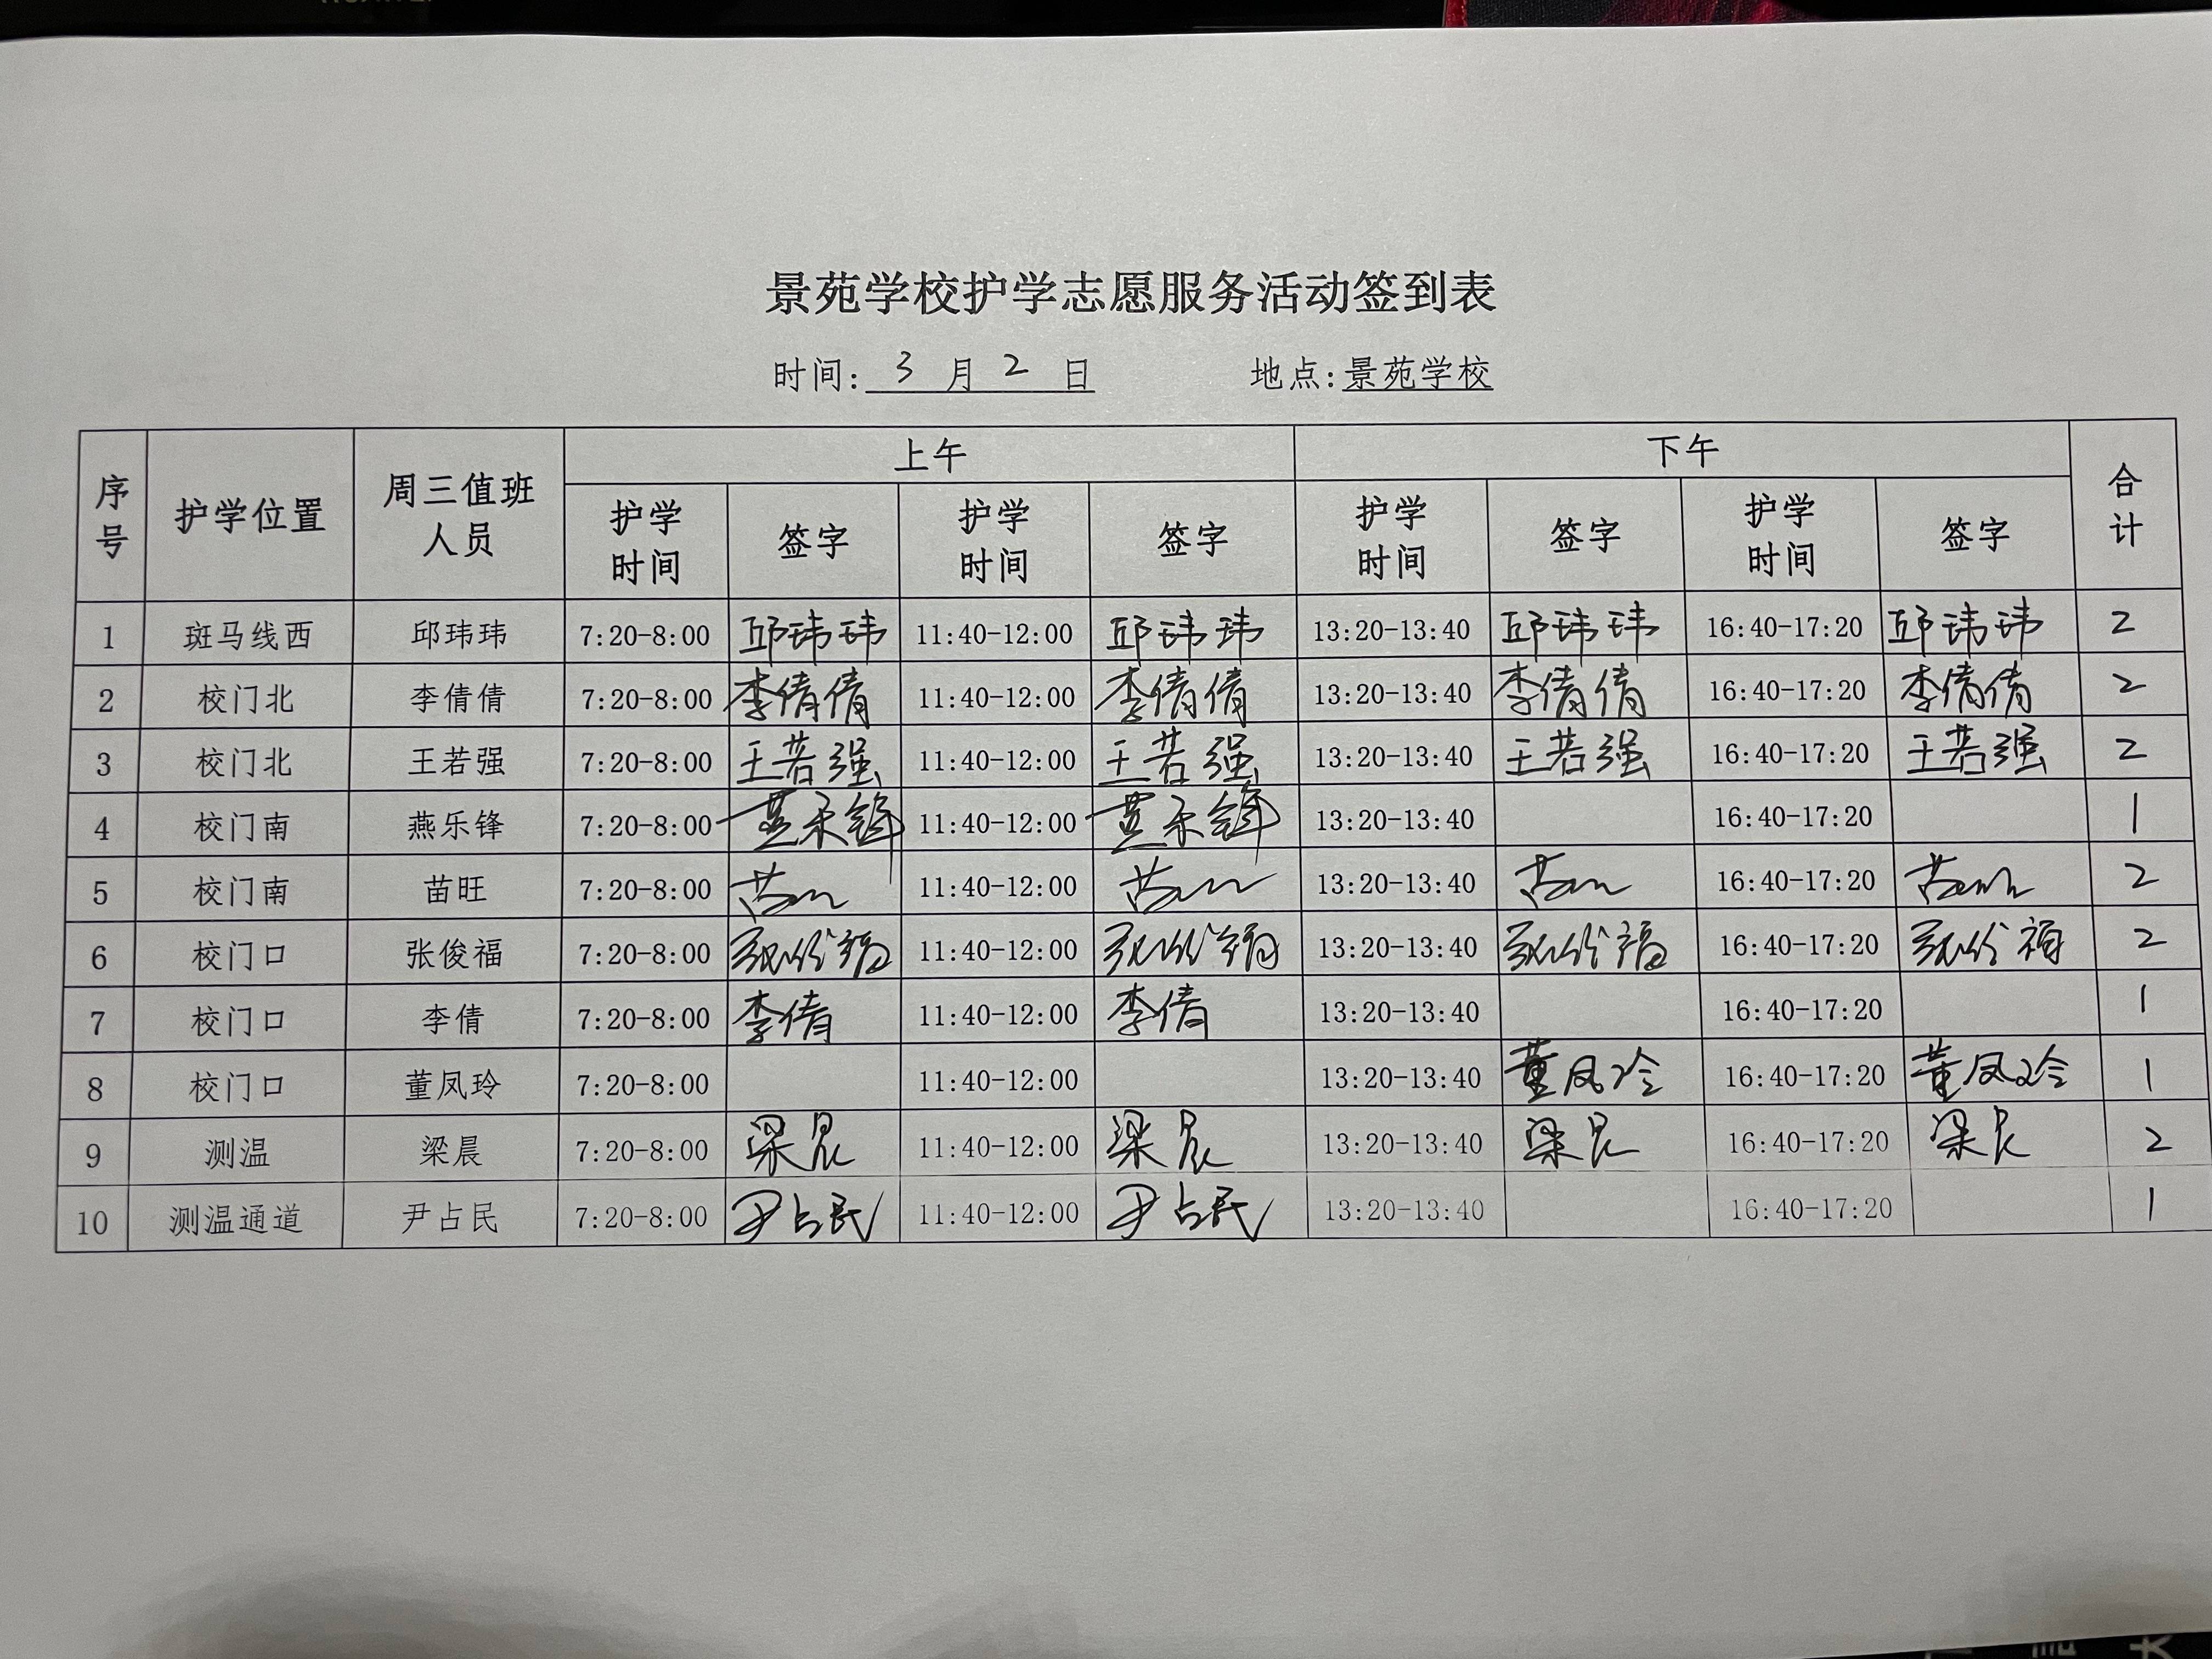 景苑学校护学志愿服务活动签到表
时间: 3 月 2 日 地点:景苑学校
序号 护学位置 周三值班人员 上午 下午 合计
护学时间 签字 护学时间 签字 护学时间 签字 护学时间 签字
1 斑马线西 邱玮玮 7:20-8:00 邱玮玮 11:40-12:00 邱玮玮 13:20-13:40 邱玮玮 16:40-17:20 邱玮玮 2
2 校门北 李倩倩 7:20-8:00 李倩倩 11:40-12:00 李倩倩 13:20-13:40 李倩倩 16:40-17:20 李倩倩 2
3 校门北 王若强 7:20-8:00 王若强 11:40-12:00 王若强 13:20-13:40 王若强 16:40-17:20 王若强 2
4 校门南 燕乐锋 7:20-8:00 燕乐锋 11:40-12:00 燕乐锋 13:20-13:40 16:40-17:20 1
5 校门南 苗旺 7:20-8:00 苗旺 11:40-12:00 苗旺 13:20-13:40 苗旺 16:40-17:20 苗旺 2
6 校门口 张俊福 7:20-8:00 张俊福 11:40-12:00 张俊福 13:20-13:40 张俊福 16:40-17:20 张俊福 2
7 校门口 李倩 7:20-8:00 李倩 11:40-12:00 李倩 13:20-13:40 16:40-17:20 1
8 校门口 董凤玲 7:20-8:00 11:40-12:00 13:20-13:40 董凤玲 16:40-17:20 董凤玲 1
9 测温 梁晨 7:20-8:00 梁晨 11:40-12:00 梁晨 13:20-13:40 梁晨 16:40-17:20 梁晨 2
10 测温通道 尹占民 7:20-8:00 尹占民 11:40-12:00 尹占民 13:20-13:40 16:40-17:20 1